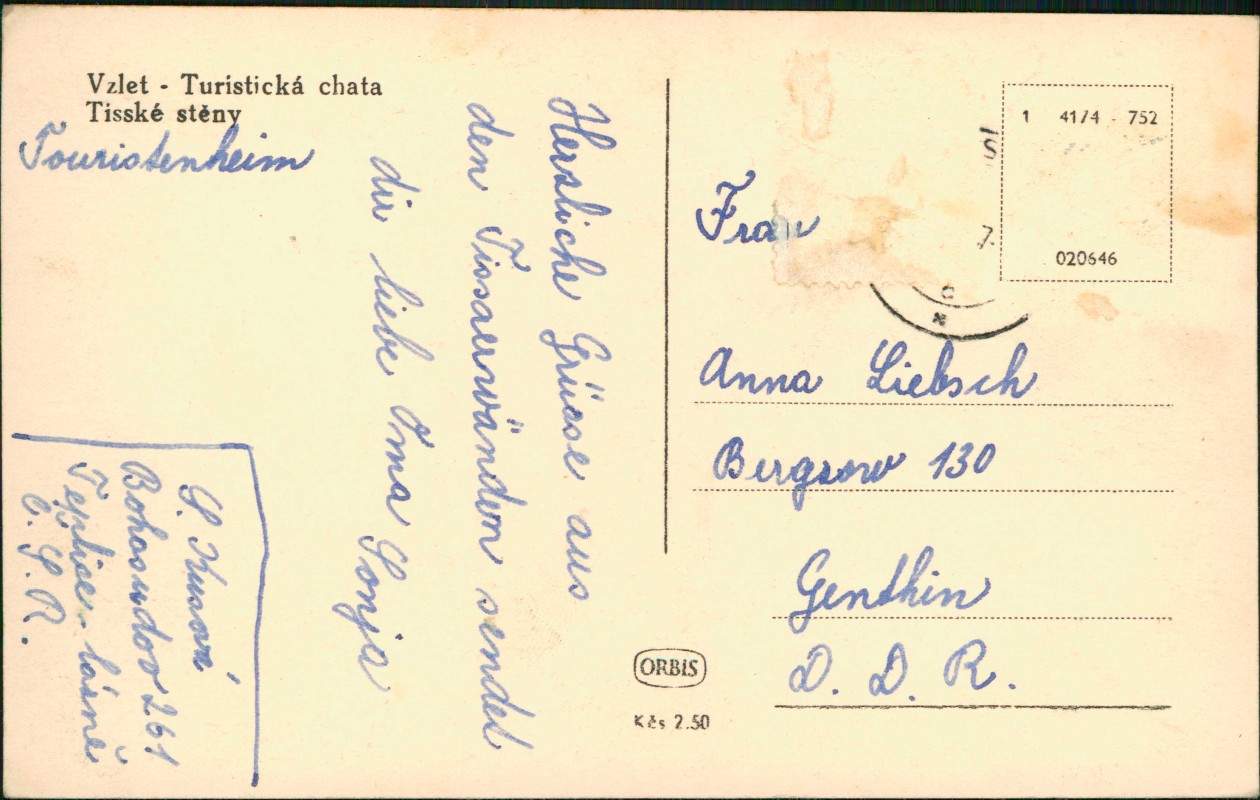 Vzlet - Turistická chata
Tisské stěny
Touristenheim
Herzliche Grüsse aus
den Tissaerwänden sendet
dir liebe Oma Sonja
Bohosudov 261
Teplice. lázně
Č. S. R.
Frau
Anna Liebsch
Bergzow 130
Genthin
D. D. R.
1 41/4 - 752
020646
ORBIS
Kčs 2.50